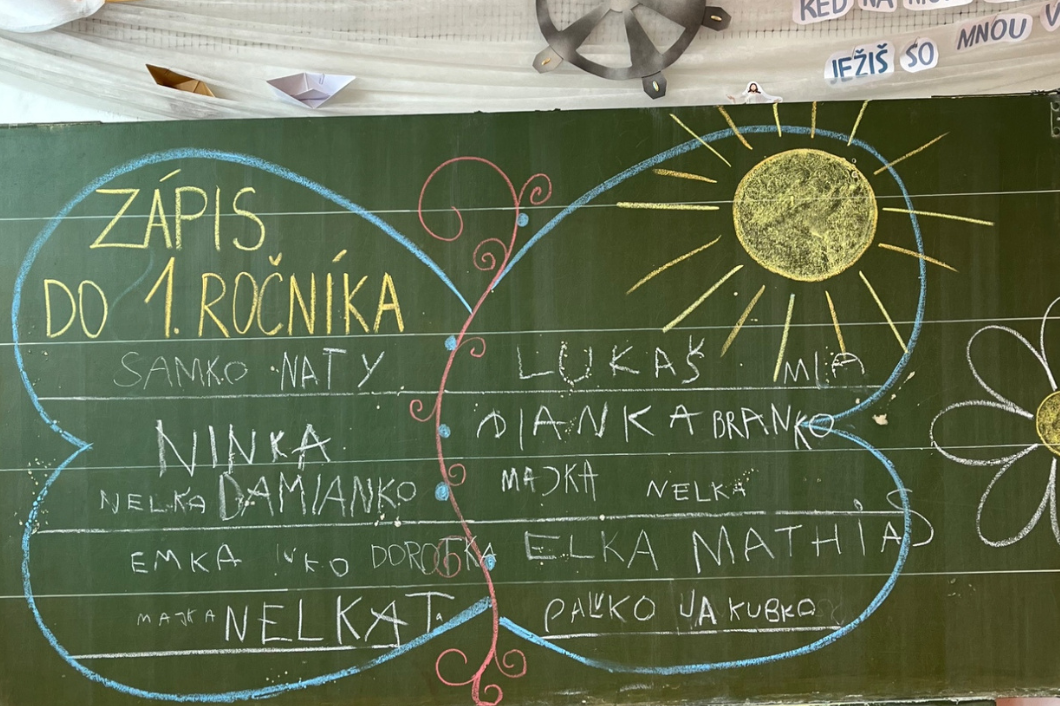 KEĎ NA
JEŽIŠ SO MNOU
ZÁPIS
DO 1. ROČNÍKA
SAMKO NATY
NINKA
NELKA DAMIANKO
EMKA DOROTKA
MAJKA NELKA T.
LUKÁŠ MIA
DIANKA BRANKO
MAJKA NELKA
ELKA MATHIAS
PAĽKO JAKUBKO